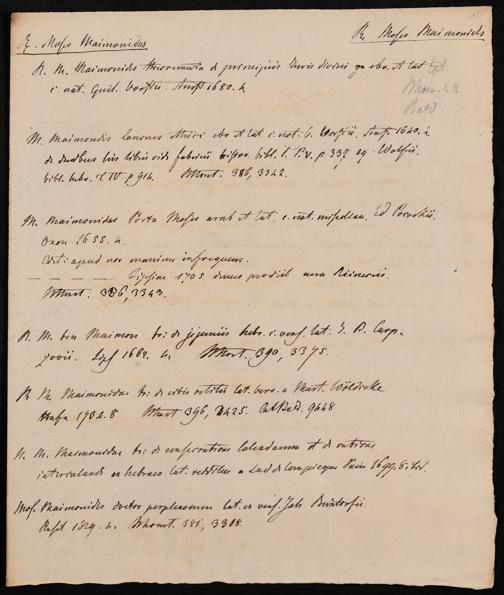 R. Moses Maimonides
R. Moses Maimonides
R. M. Maimonidis theoremata de principiis Juris divini ex ebr. et lat
c. not. Guil. Vorstii. Amst 1680. 4
M. Maimonidis Canones Ethici ebr. et lat c. not. G. Gentii. Amst 1640. 4
de duobus his libris vide Fabricii histor. bibl. P. V. p 337 sq. Wolfii
bibl. hebr. T IV p 914. 386, 3342.
M. Maimonides Porta Mosis arab et lat. c. not. miscellan. Ed Pocockii.
Oxon 1655. 4.
apud nos maxime infrequens.
Lipsiae 1705 denuo prodiit cura Reineccii.
386, 3343.
R. M. ben Maimon tr: de jejuniis hebr. c. vers. lat. J. B. Carp-
zovii. Lips 1662. 4. 390, 3375.
R M. Maimonidae tr: de cibis vetitis lat. vers. a Marc. Wöldicke
Hafn 1704. 8 396, 3425. Cat. 9448
R. M. Maimonidae tr: de consecratione Calendarum et de ratione
intercalandi ex hebraeo lat. redditus a Lud de Compiegne Paris 1699. 8.
Mos. Maimonides doctor perplexorum lat. vers. Joh Buxtorfii.
Basil 1629. 4. 381, 3308.